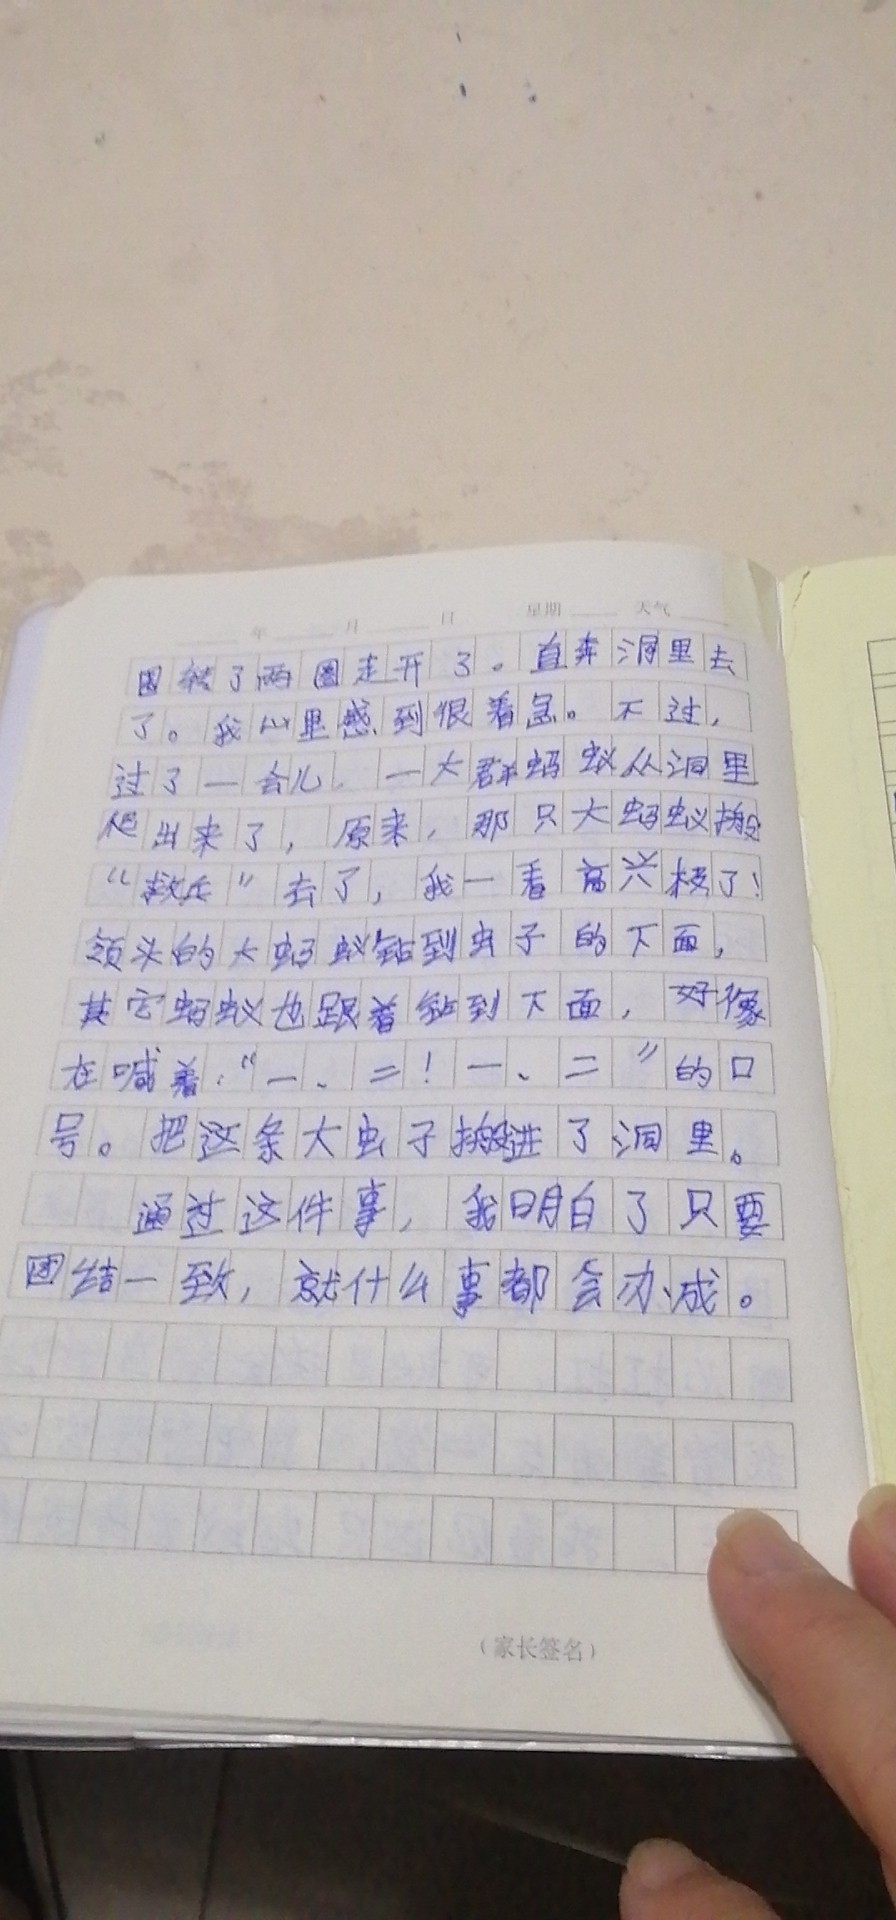 年 月 日 星期 天气
围转了两圈走开了。直奔洞里去
了。我心里感到很着急。不过,
过了一会儿.一大群蚂蚁从洞里
爬出来了,原来,那只大蚂蚁搬
“救兵”去了,我一看高兴极了!
领头的大蚂蚁钻到虫子的下面,
其它蚂蚁也跟着钻到下面,好像
在喊着:“一、二!一、二”的口
号。把这条大虫子搬进了洞里。
通过这件事,我明白了只要
团结一致,就什么事都会办成。
(家长签名)